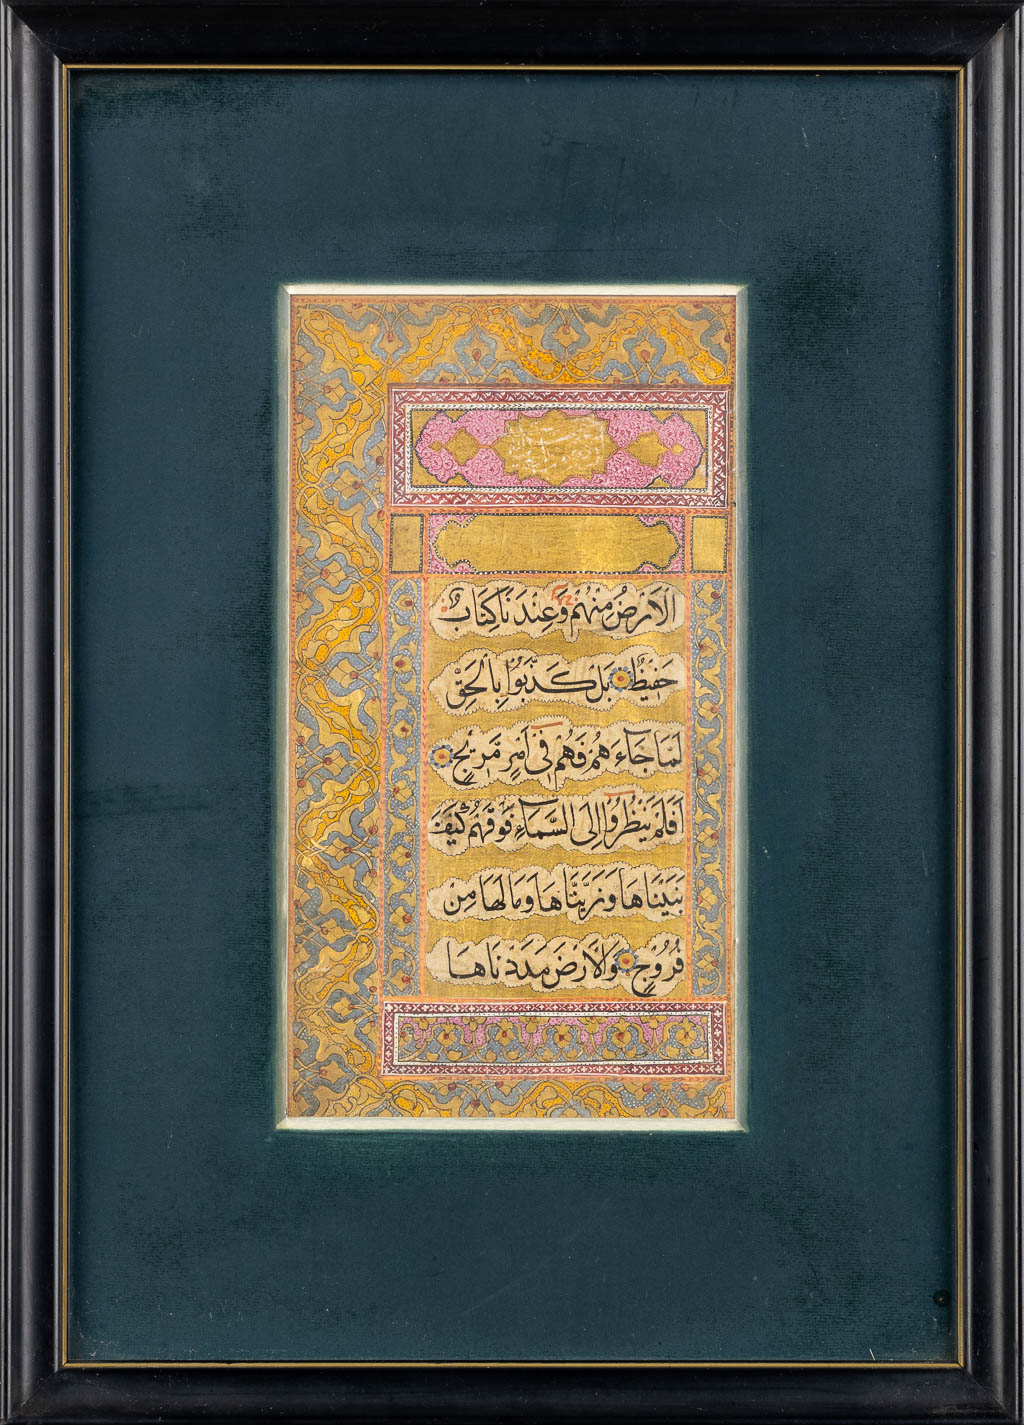 الْاَرْضُ مِنْهُمْ وَعِنْدَنَا كِتَابٌ
حَفِيظٌ بَلْ كَذَّبُوا بِالْحَقِّ
لَمَّا جَاءَهُمْ فَهُمْ فِي اَمْرٍ مَّرِيجٍ
اَفَلَمْ يَنْظُرُوا اِلَى السَّمَاءِ فَوْقَهُمْ كَيْفَ
بَنَيْنَاهَا وَزَيَّنَّاهَا وَمَا لَهَا مِنْ
فُرُوجٍ وَالْاَرْضَ مَدَدْنَاهَا